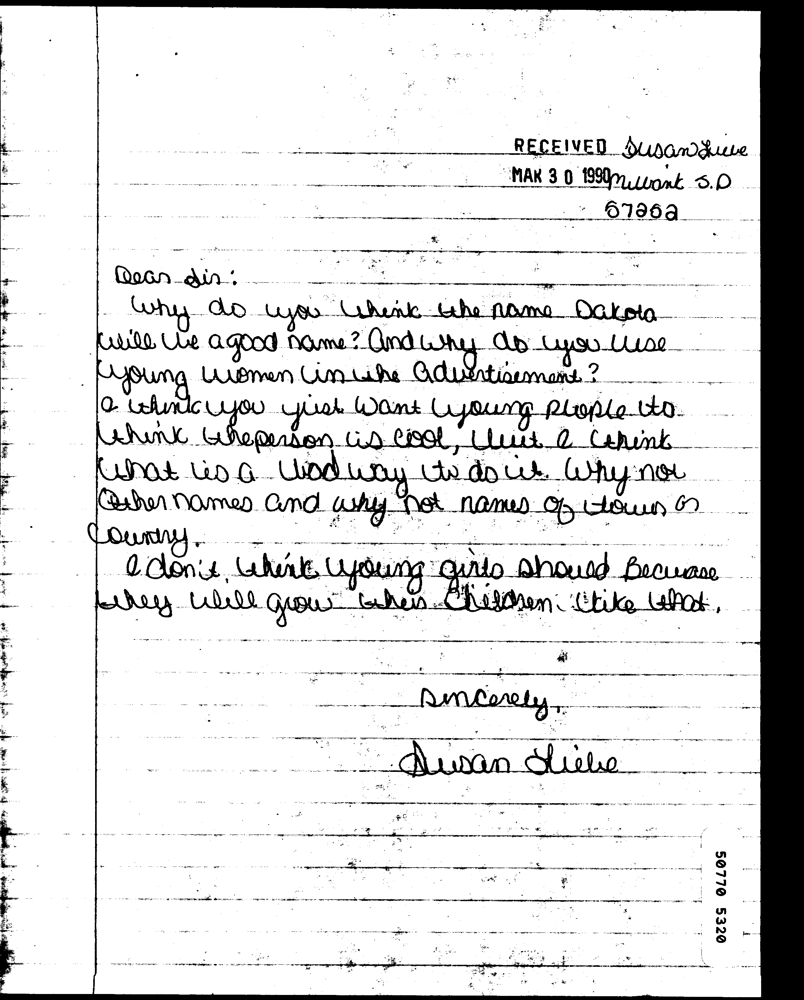 RECEIVED Susan Liebe
MAR 30 1990 Milbank S.D
57252
Dear Sir:
Why do you think the name Dakota
will be a good name? And why do you use
young women in the advertisement?
I think you just want young people to
think the person is cool, but I think
that is a bad way to do it. Why not
Other names and why not names of towns or
Country.
I don't think young girls should Becuase
they will grow their Children like that.
Sincerely,
Susan Liebe
50770 5320